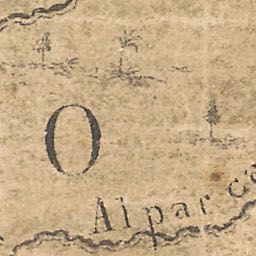 O
Aipar ca